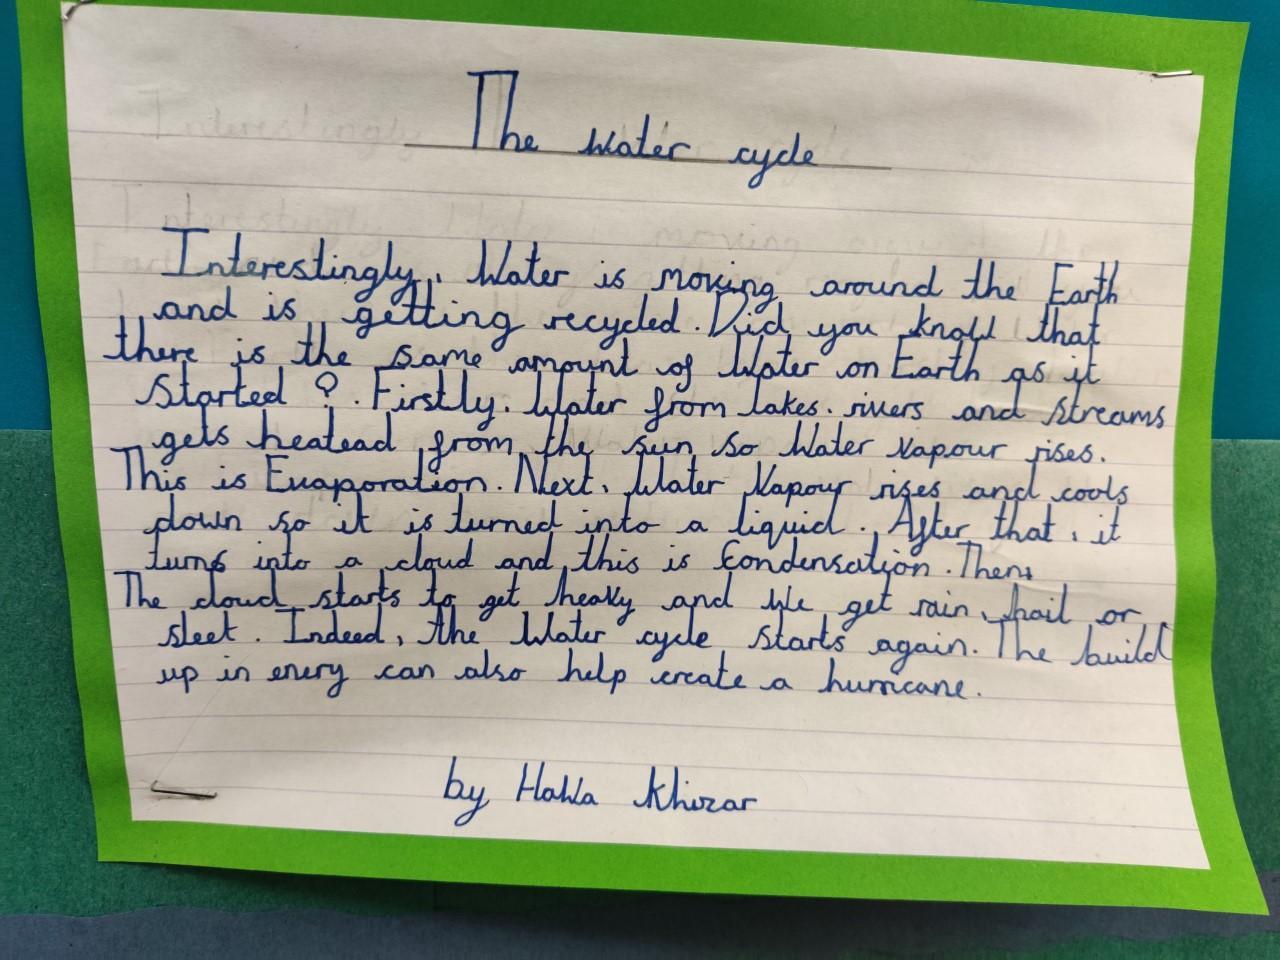 The Water cycle
Interestingly, Water is moving around the Earth
and is getting recycled. Did you know that
there is the same amount of Water on Earth as it
Started ?. Firstly, Water from lakes, rivers and streams
gets heatead from the sun so Water vapour rises.
This is Evaporation. Next, Water Vapour rises and cools
down so it is turned into a liquid. After that, it
turns into a cloud and this is Condensation. Then,
The cloud starts to get heavy and We get rain, hail or
sleet. Indeed, the Water cycle starts again. The build
up in enery can also help create a hurricane.
by Hawa Khizar